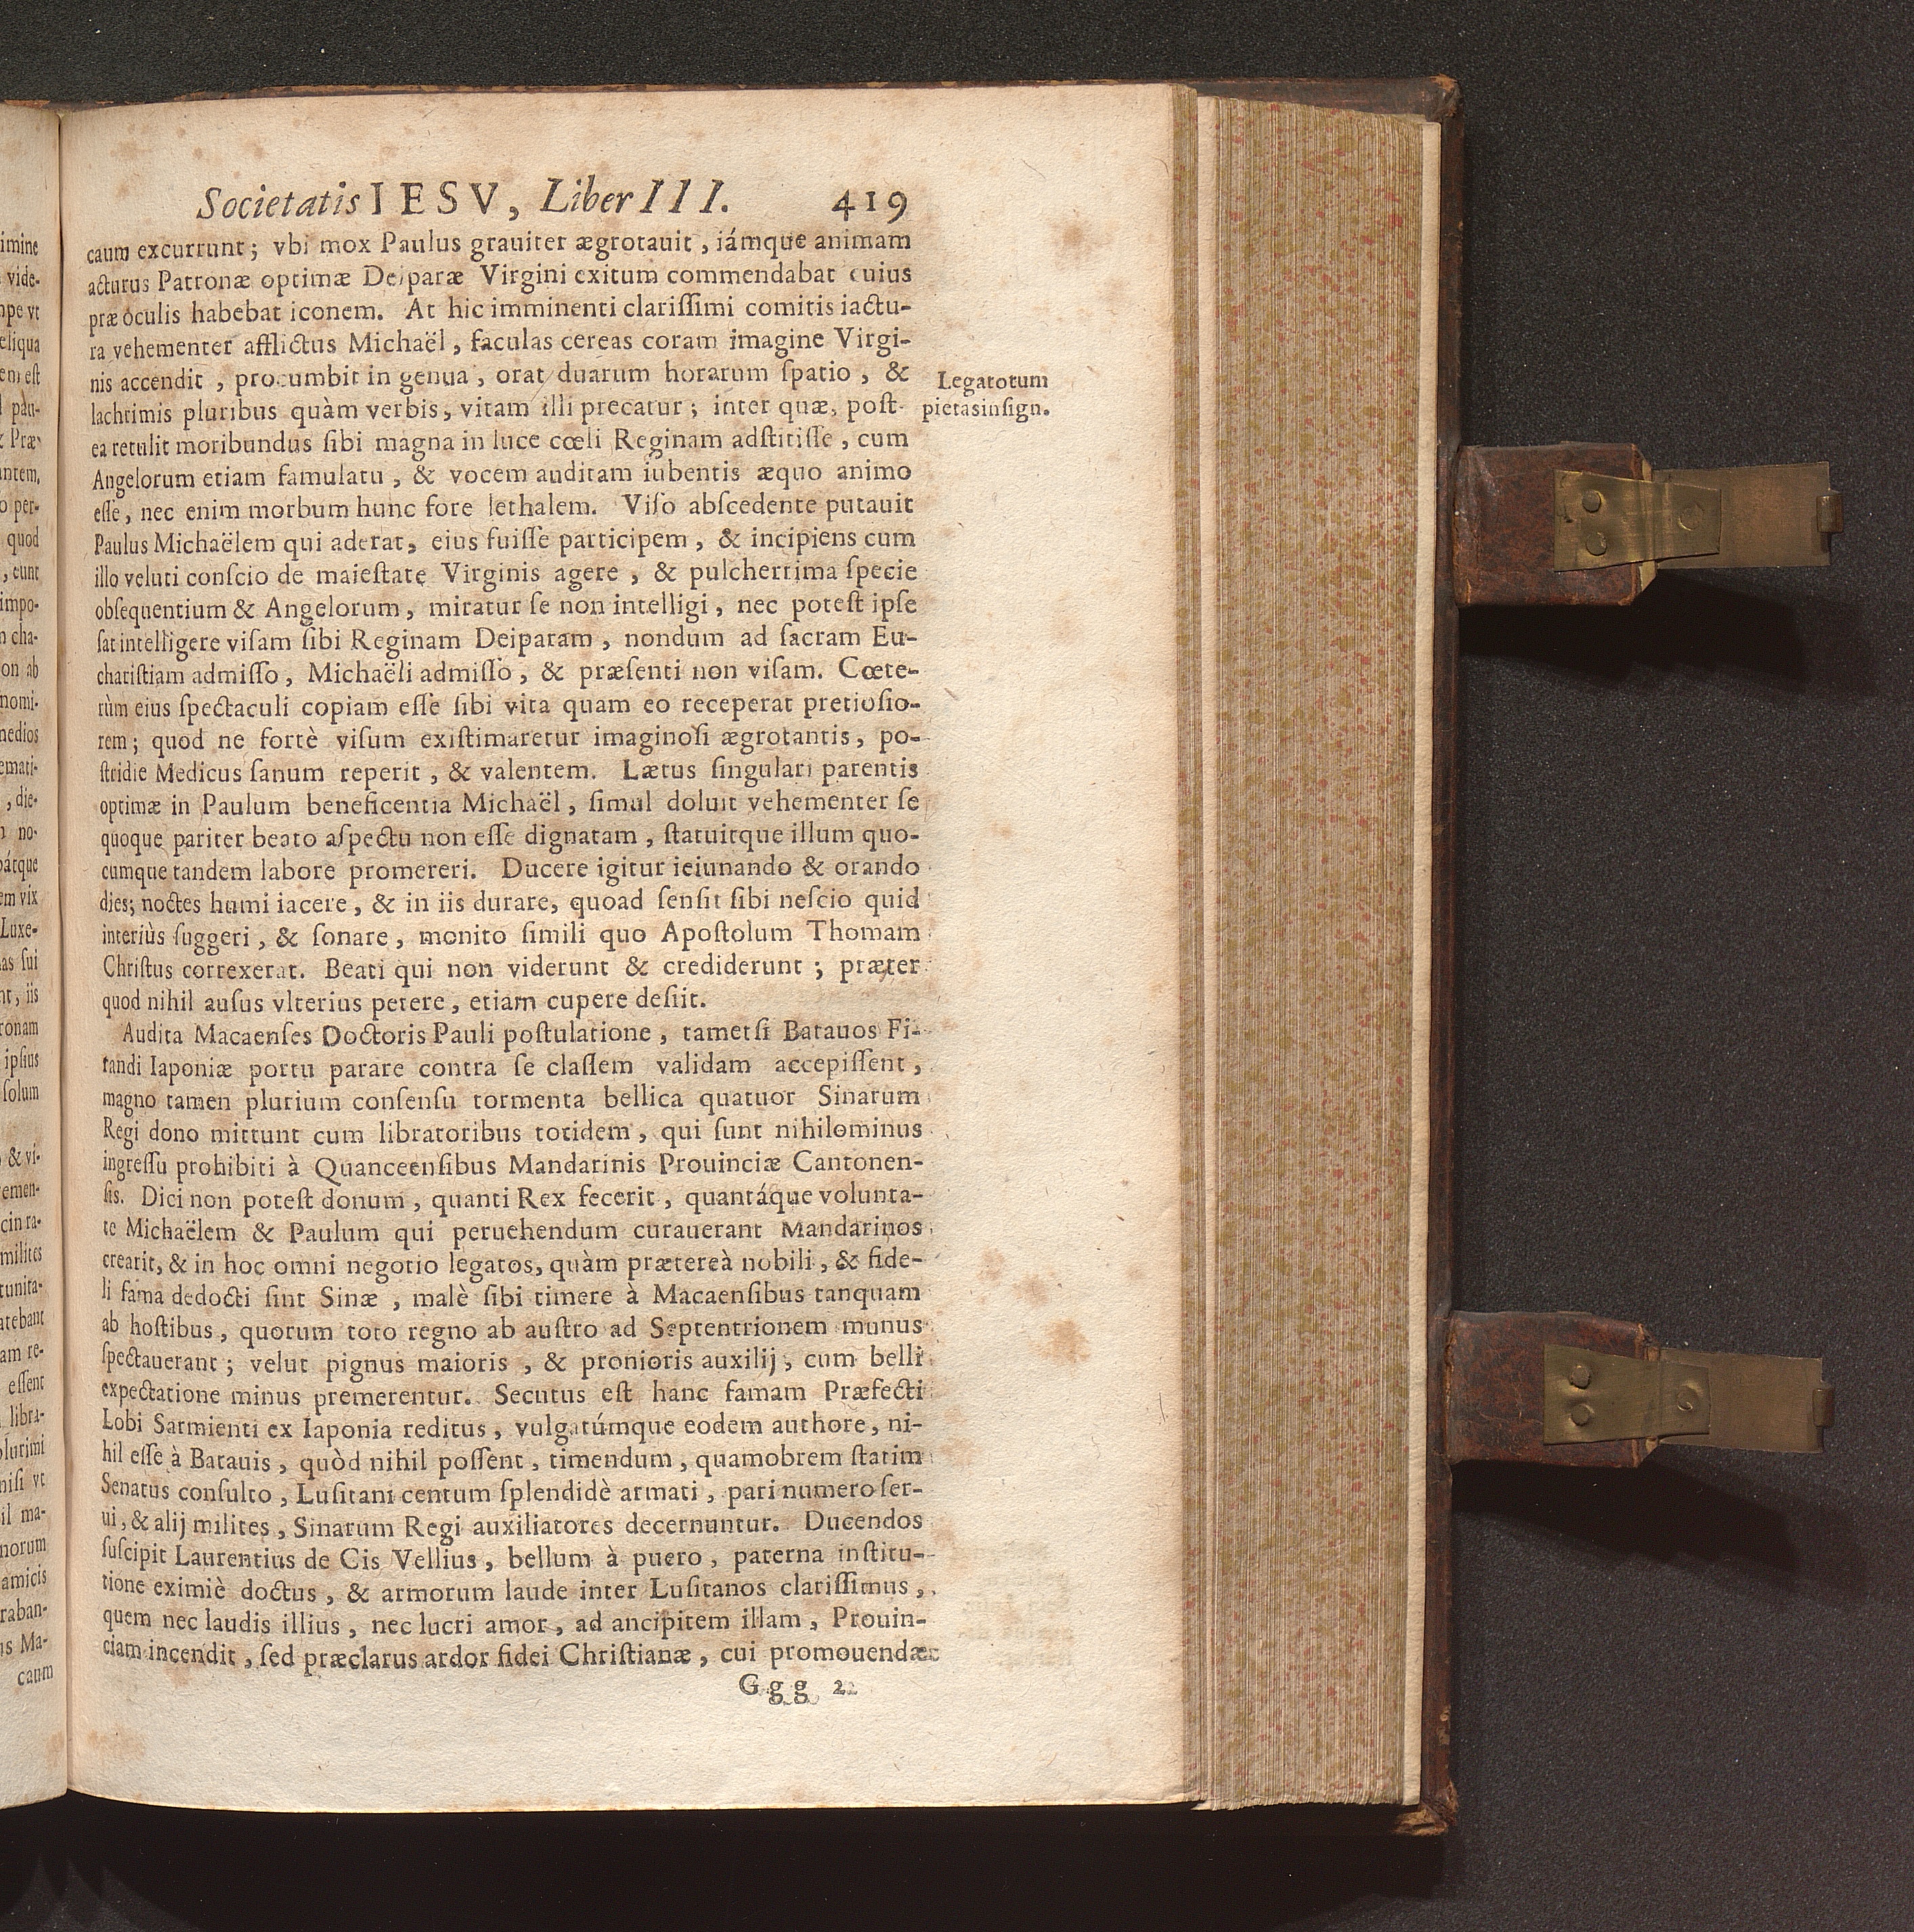 Societatis IESV, Liber III. 419
caum excurrunt; vbi mox Paulus grauiter ægrotauit, iámque animam
acturus Patronæ optimæ Deiparæ Virgini exitum commendabat cuius
præ oculis habebat iconem. At hic imminenti clarissimi comitis iactu-
ra vehementer afflictus Michaël, faculas cereas coram imagine Virgi-
nis accendit, procumbit in genua, orat duarum horarum spatio, &
lachrimis pluribus quàm verbis, vitam illi precatur; inter quæ, post-
ea retulit moribundus sibi magna in luce cœli Reginam adstitisse, cum
Angelorum etiam famulatu, & vocem auditam iubentis æquo animo
esse, nec enim morbum hunc fore lethalem. Viso abscedente putauit
Paulus Michaëlem qui aderat, eius fuisse participem, & incipiens cum
illo veluti conscio de maiestate Virginis agere, & pulcherrima specie
obsequentium & Angelorum, miratur se non intelligi, nec potest ipse
sat intelligere visam sibi Reginam Deiparam, nondum ad sacram Eu-
charistiam admisso, Michaëli admisso, & præsenti non visam. Cœte-
rùm eius spectaculi copiam esse sibi vita quam eo receperat pretiosio-
rem; quod ne fortè visum existimaretur imaginosi ægrotantis, po-
stridie Medicus sanum reperit, & valentem. Lætus singulari parentis
optimæ in Paulum beneficentia Michaël, simul doluit vehementer se
quoque pariter beato aspectu non esse dignatam, statuitque illum quo-
cumque tandem labore promereri. Ducere igitur ieiunando & orando
dies; noctes humi iacere, & in iis durare, quoad sensit sibi nescio quid
interiùs suggeri, & sonare, monito simili quo Apostolum Thomam
Christus correxerat. Beati qui non viderunt & crediderunt; præter
quod nihil ausus vlterius petere, etiam cupere desiit.
Audita Macaenses Doctoris Pauli postulatione, tametsi Batauos Fi-
randi Iaponiæ portu parare contra se classem validam accepissent,
magno tamen plurium consensu tormenta bellica quatuor Sinarum
Regi dono mittunt cum libratoribus totidem, qui sunt nihilominus
ingressu prohibiti à Quanceensibus Mandarinis Prouinciæ Cantonen-
sis. Dici non potest donum, quanti Rex fecerit, quantáque volunta-
te Michaëlem & Paulum qui peruehendum curauerant Mandarinos
crearit, & in hoc omni negotio legatos, quàm prætereà nobili, & fide-
li fama dedocti sint Sinæ, malè sibi timere à Macaensibus tanquam
ab hostibus, quorum toto regno ab austro ad Septentrionem munus
spectauerant; velut pignus maioris, & pronioris auxilij, cum belli
expectatione minus premerentur. Secutus est hanc famam Præfecti
Lobi Sarmienti ex Iaponia reditus, vulgatúmque eodem authore, ni-
hil esse à Batauis, quòd nihil possent, timendum, quamobrem statim
Senatus consulto, Lusitani centum splendidè armati, pari numero ser-
ui, & alij milites, Sinarum Regi auxiliatores decernuntur. Ducendos
suscipit Laurentius de Cis Vellius, bellum à puero, paterna institu-
tione eximiè doctus, & armorum laude inter Lusitanos clarissimus,
quem nec laudis illius, nec lucri amor, ad ancipitem illam, Prouin-
ciam incendit, sed præclarus ardor fidei Christianæ, cui promouendæ
Ggg 2
Legatotum
pietas insign.
imine
vide-
npe vt
eliqua
em est
pau-
Præ-
antem,
o per-
quod
, eunt
impo-
n cha-
on ab
nomi-
medios
emati-
, die-
no-
pátque
em vix
Luxe-
as sui
nt, iis
ronam
ipsius
solum
& vi-
emen-
cin ra-
milites
tunita-
atebant
am re-
essent
libra-
plurimi
nisi vt
il ma-
norum
amicis
raban-
ns Ma-
caum